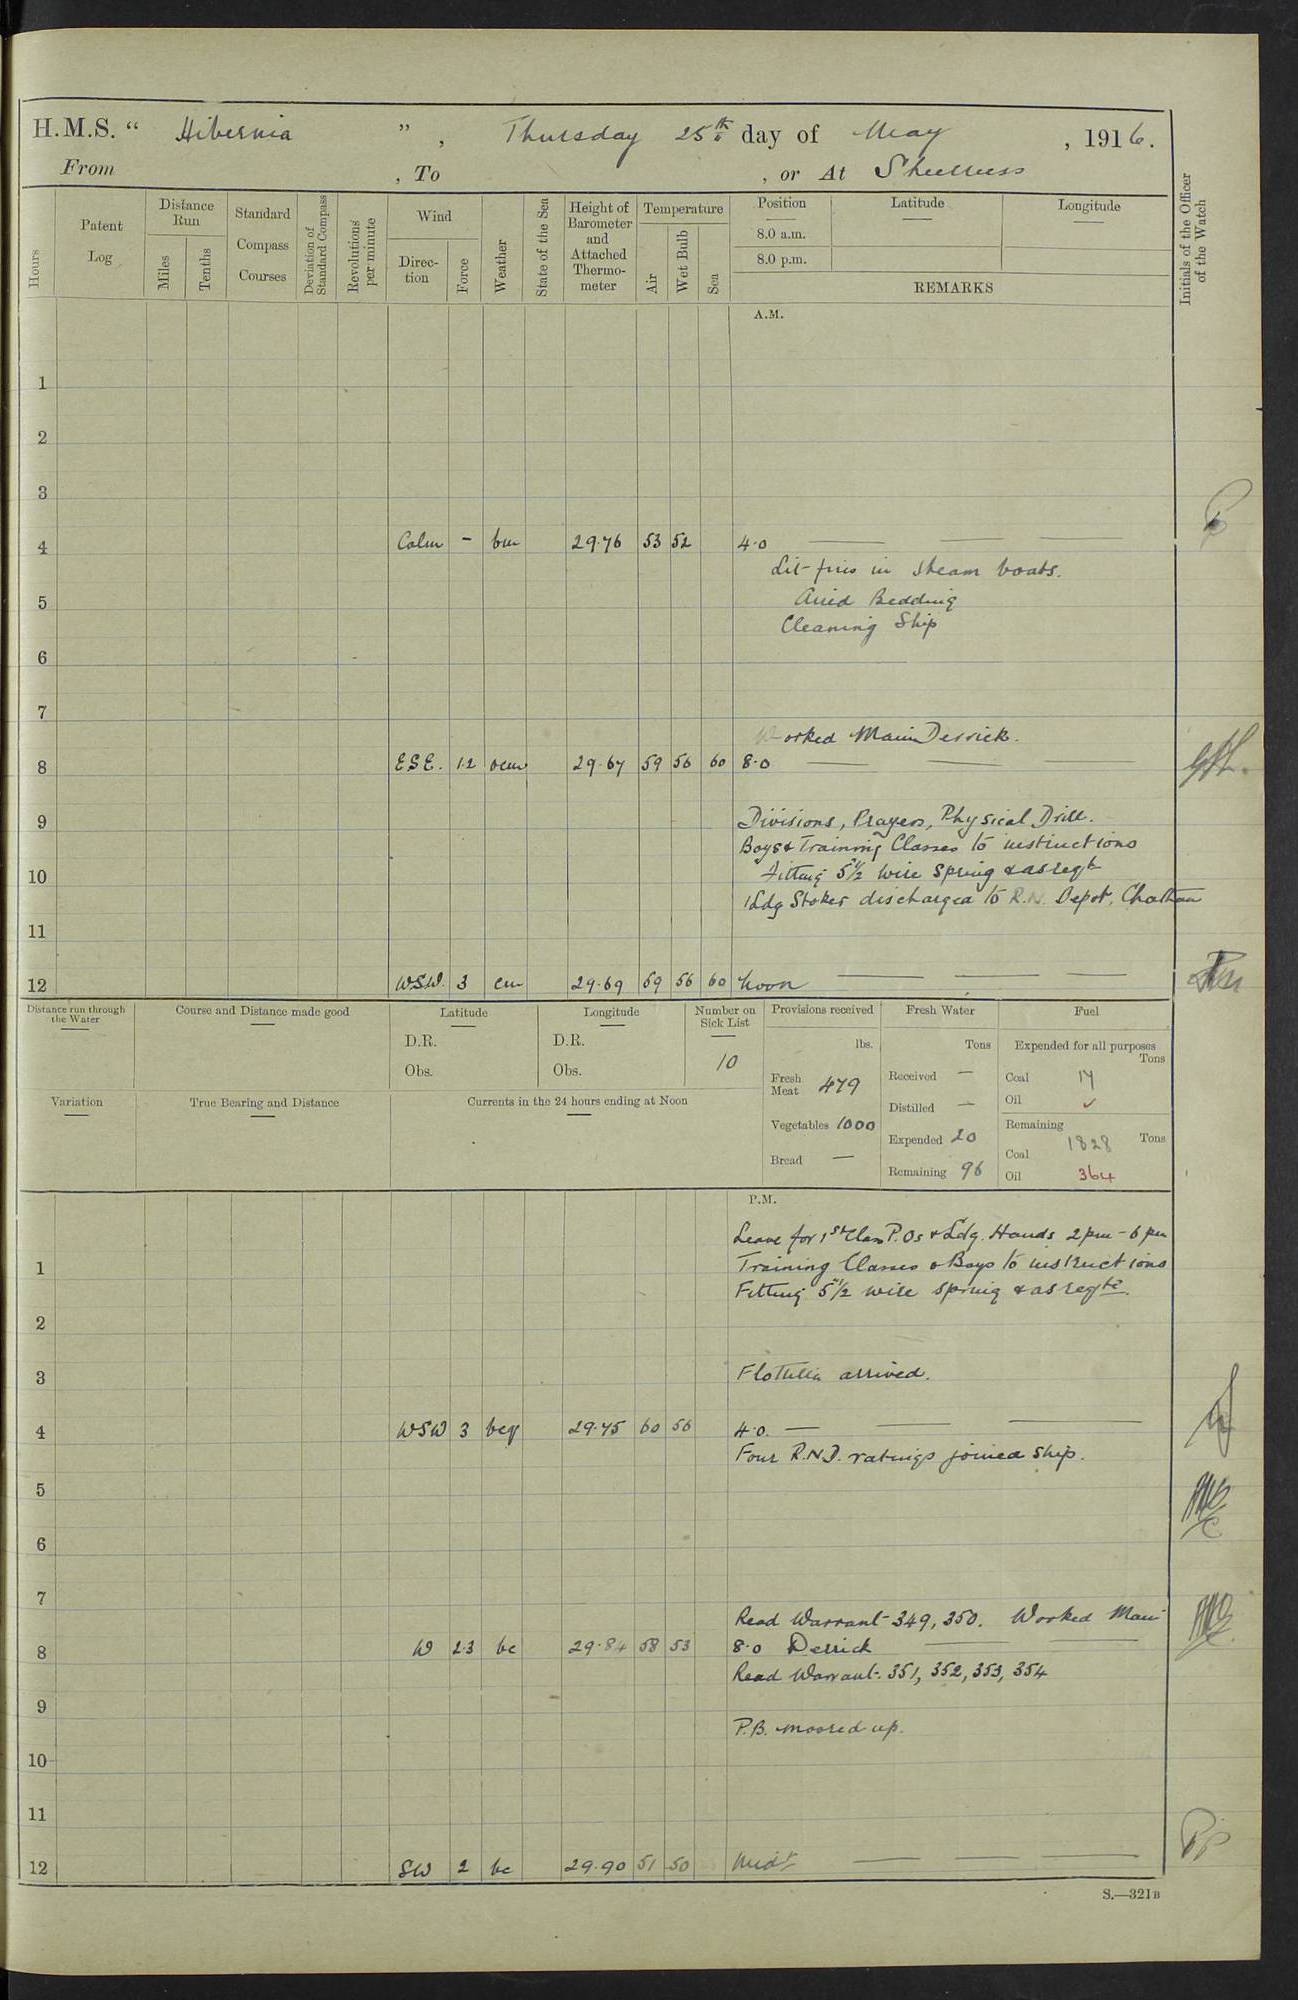 H.M.S. " Hibernia " , Thursday 25th day of May , 1916.
From , To , or At Sheerness
Hours
Patent Log
Distance Run
Miles
Tenths
Standard Compass Courses
Deviation of Standard Compass
Revolutions per minute
Wind
Direc-tion
Force
Weather
State of the Sea
Height of Barometer and Attached Thermo-meter
Temperature
Air
Wet Bulb
Sea
Position
8.0 a.m.
8.0 p.m.
Latitude
Longitude
REMARKS
Initials of the Officer of the Watch
A.M.
1
2
3
4 Calm – bm 29.76 53 52 4.0
Lit fires in steam boats.
5 Aired Bedding
Cleaning Ship
6
7
Worked Main Derrick.
8 ESE. 1.2 bcm 29.67 59 56 60 8.0
9 Divisions, Prayers, Physical Drill.
Boys & Training Classes to instructions
10 Fitting 5½" wire spring & as reqte
1 Ldg Stoker discharged to R.N. Depot, Chatham
11
12 WSW. 3 cm 29.69 59 56 60 Noon
Distance run through the Water
Course and Distance made good
Latitude
D.R.
Obs.
Longitude
D.R.
Obs.
Number on Sick List
10
Provisions received
lbs.
Fresh Meat 479
Vegetables 1000
Bread —
Fresh Water
Tons
Received —
Distilled —
Expended 20
Remaining 96
Fuel
Expended for all purposes
Tons
Coal 17
Oil ✓
Remaining
Tons
Coal 1828
Oil 364
Variation
True Bearing and Distance
Currents in the 24 hours ending at Noon
P.M.
Leave for 1st Class P.Os & Ldg. Hands 2 pm – 6 pm
1 Training Classes & Boys to instructions
Fitting 5½" wire spring & as reqte.
2
3 Flotilla arrived.
4 WSW 3 bcq 29.75 60 56 4.0.
Four R.N.D. ratings joined ship.
5
6
7
Read Warrant 349, 350. Worked Main
8 W 2.3 bc 29.84 58 53 8.0 Derrick
Read Warrant. 351, 352, 353, 354
9
P.B. moored up.
10
11
12 SW 2 bc 29.90 51 50 Midt
S.—321B